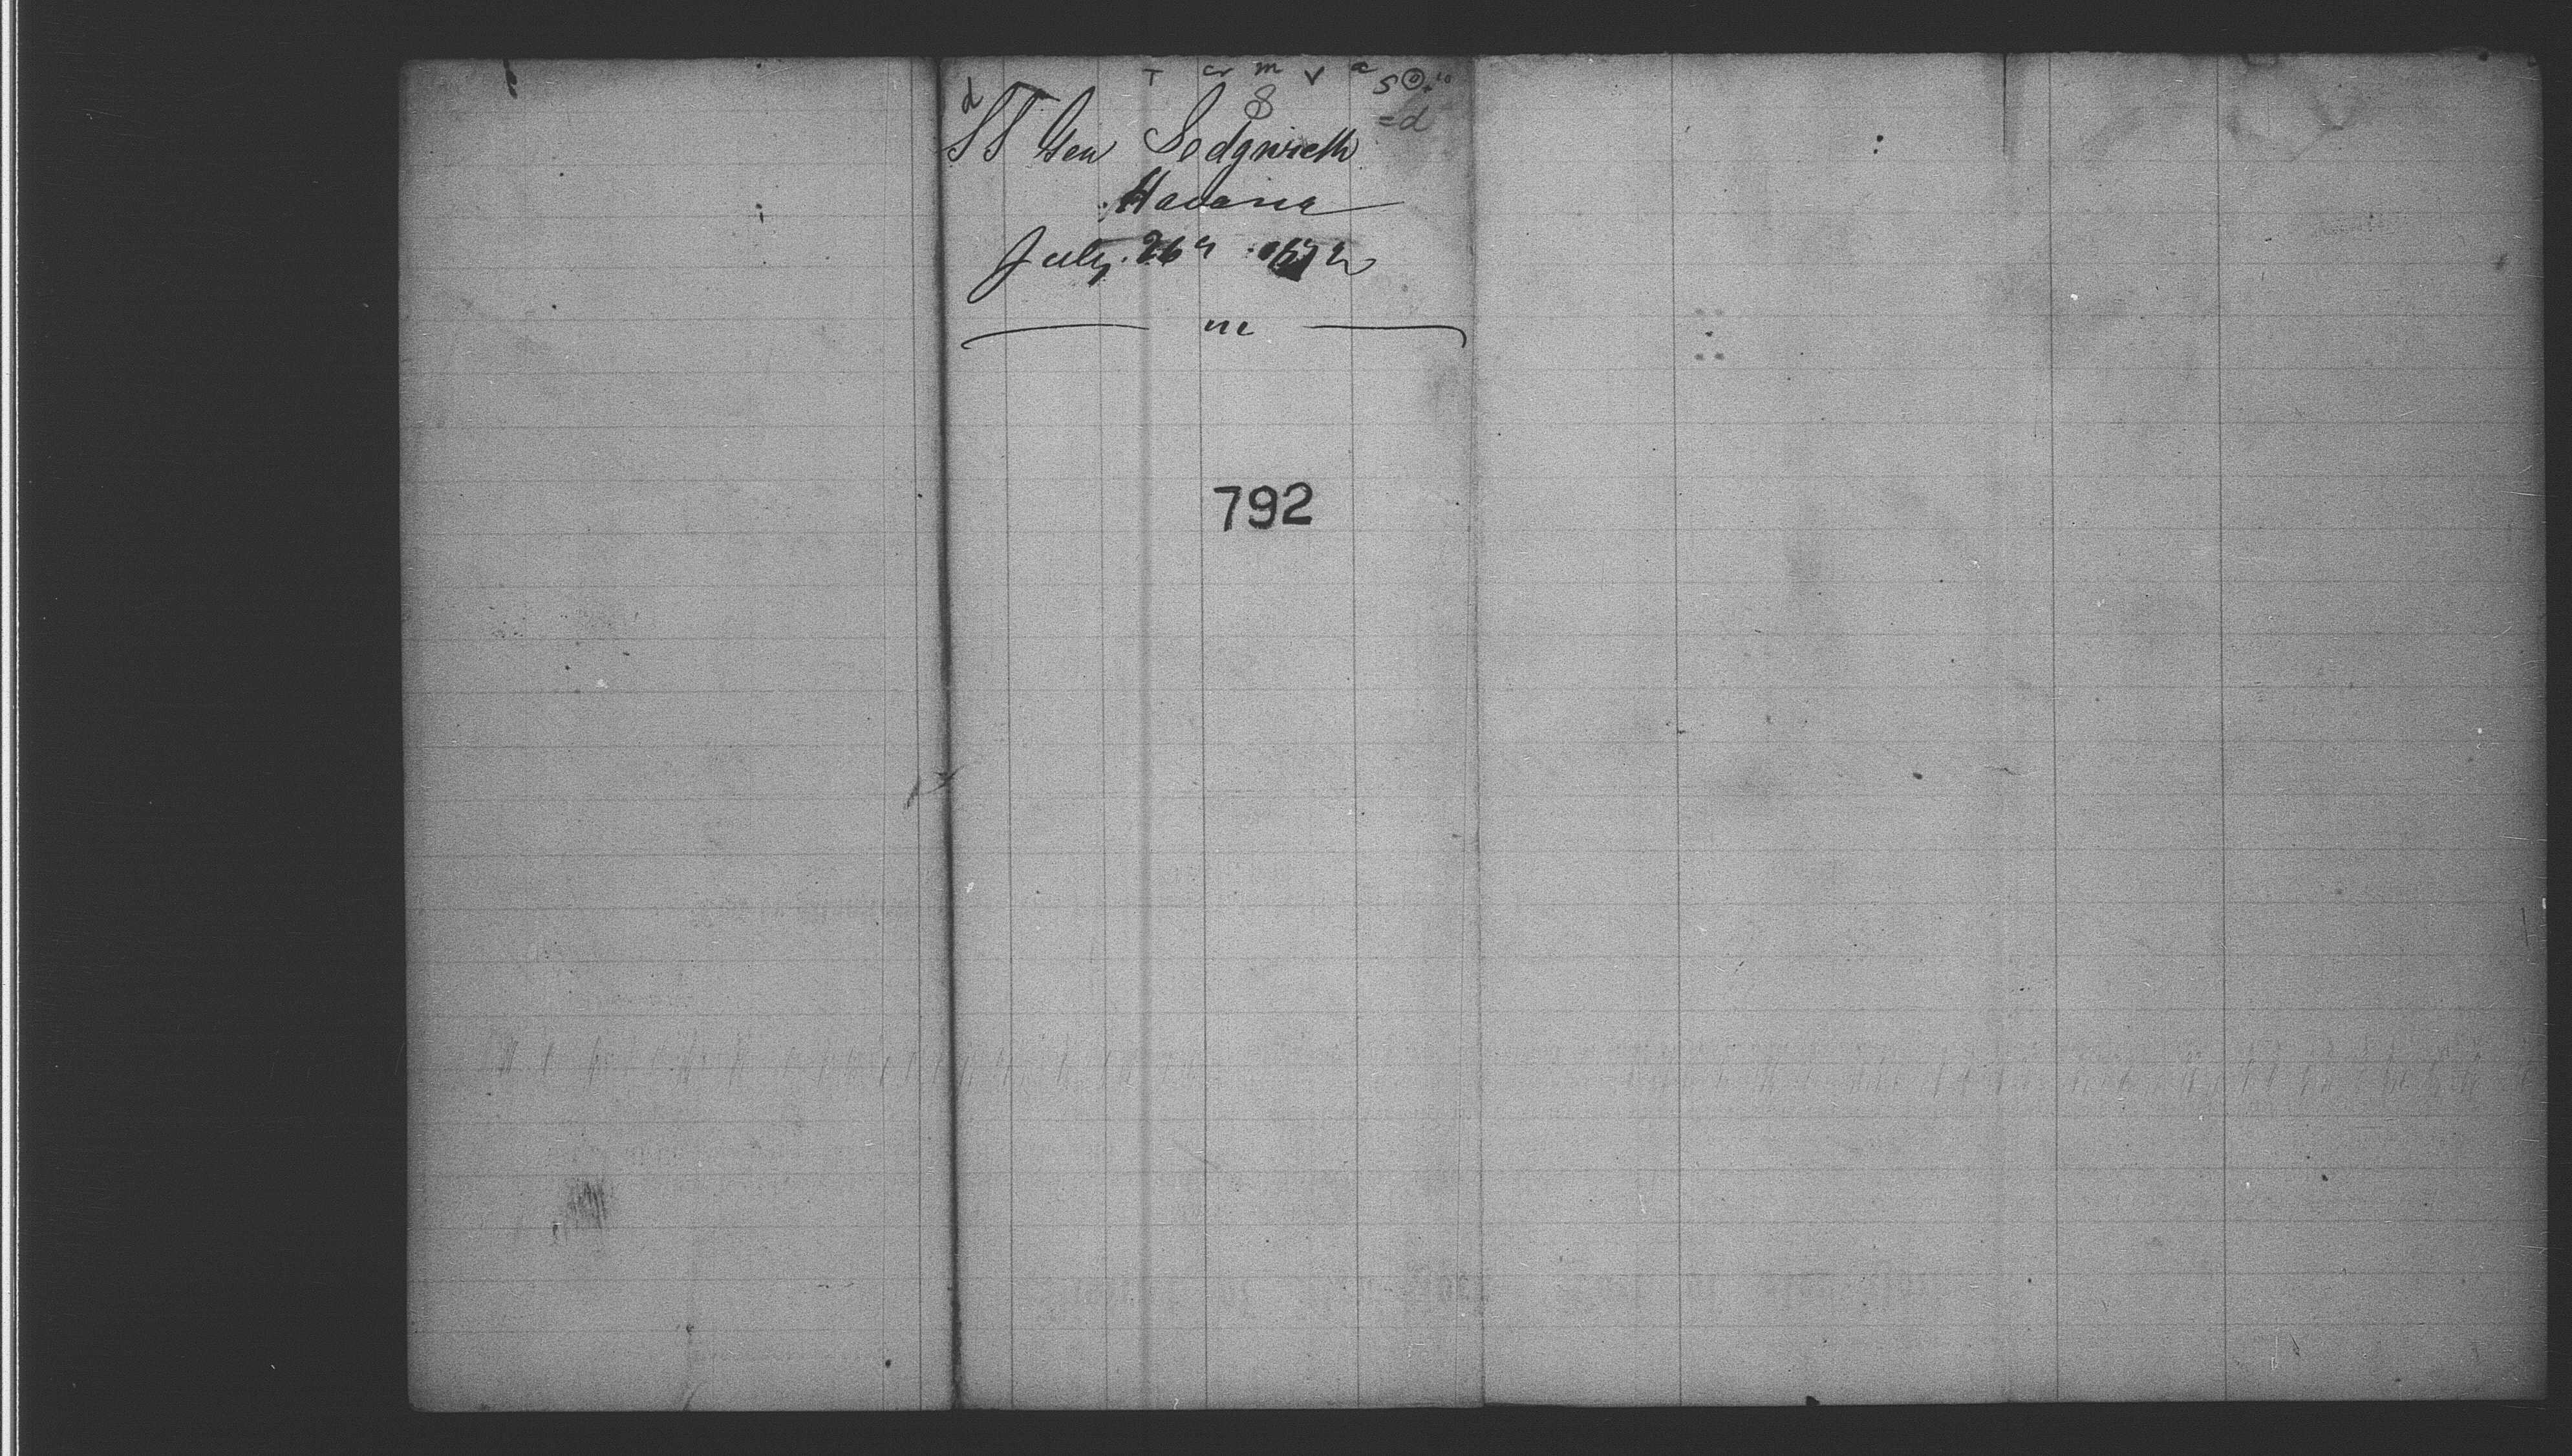 T cr m v a
S
d
8
=d
SS Gen Sedgwick
Havana
July 26th 1872
m
792